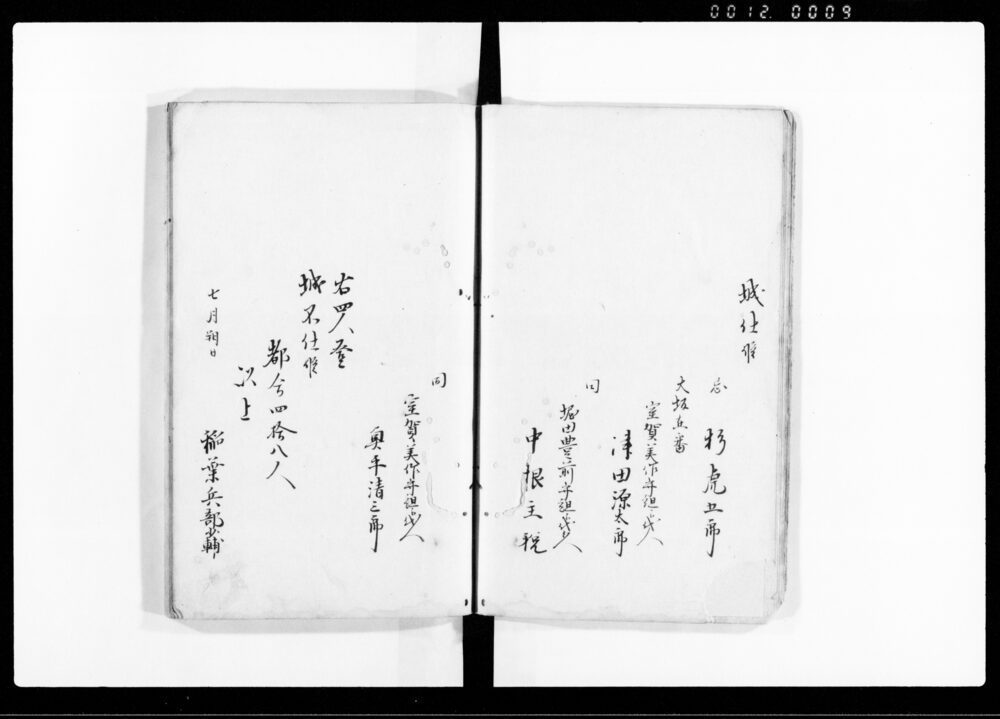 0012. 0009
城仕候
杉虎五郎
大坂在番
室賀美作守組歩人
津田源太郎
同
堀田豊前守組歩人
中根主税
同
室賀美作守組歩人
奥平清三郎
右四人登
城不仕候
都合四拾八人
以上
七月朔日
稲葉兵部少輔